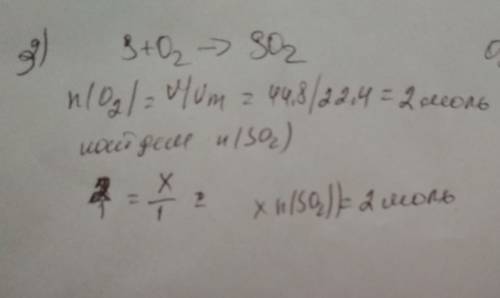 д) S+O₂ → SO₂
n(O₂) = V/Vm = 44,8/22,4 = 2 моль
найдем n(SO₂)
2/1 = x/1 = x n(SO₂) = 2 моль